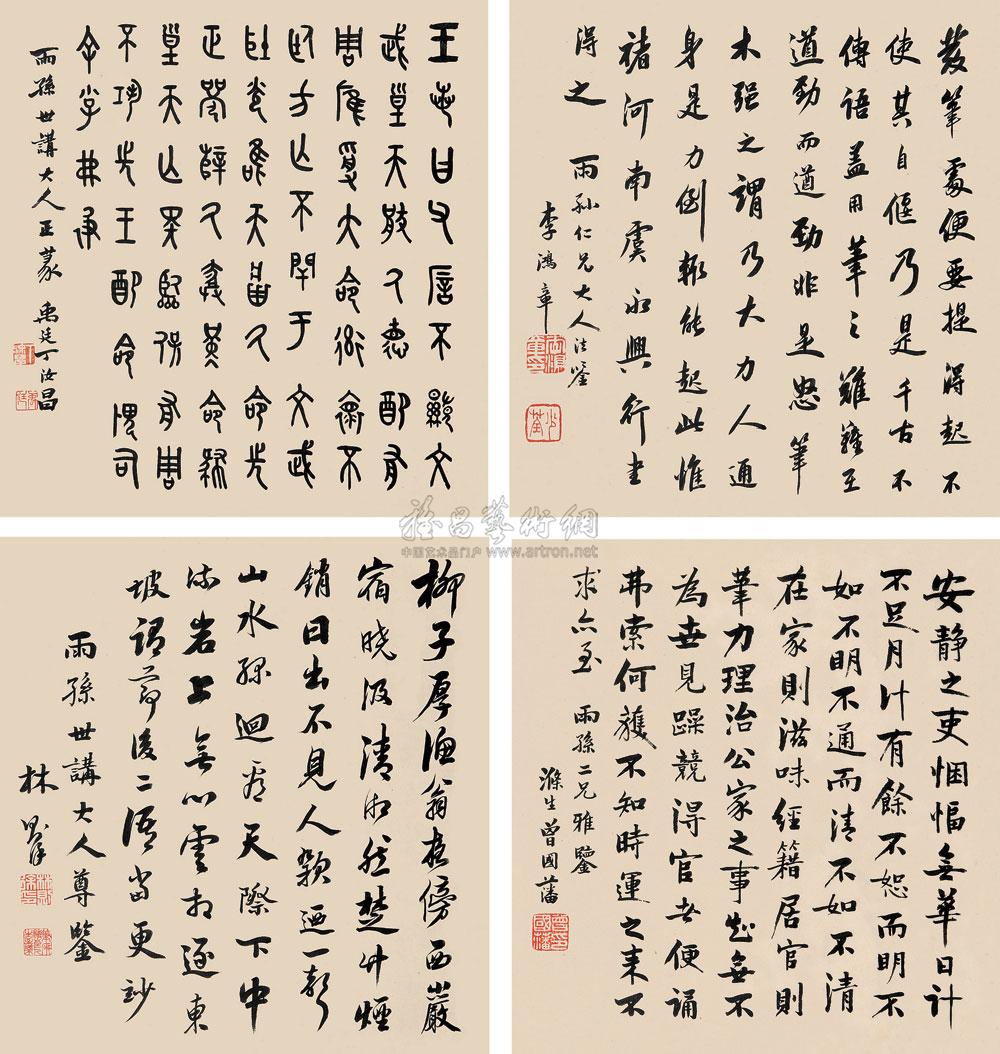 發筆處便要提得起不
使其自偃乃是千古不
傳語盖用筆之難難在
遒勁而遒勁非是怒筆
木強之謂乃大力人通
身是力倒輒能起此惟
褚河南虞永興行書
得之 雨孙仁兄大人法鑒
李鴻章
王若曰父不顯文
武皇天厥德配我
周雁受大命不
方亡不閈于文武
唯天厥命
命
皇天亡臨保我周
不巩先王配命司
雨孫世講大人正篆 禹廷丁汝昌
安靜之吏悃愊無華日計
不足月計有餘不恕而明不
如不明不通而清不如不清
在家則滋味經籍居官則
筆力理治公家之事知無不
為每見躁競得官者便誦
弗索何獲不知時運之来不
求亦至 雨孫二兄雅鑒
滌生曾國藩
柳子厚漁翁夜傍西巖
宿曉汲清湘然楚竹煙
銷日出不見人欸迺一聲
山水綠迴看天際下中
流岩上無心雲相逐東
坡謂節後二語當更妙
雨孫世講大人尊鑒
林則徐
雅昌藝術網
中国艺术品门户 www.artron.net